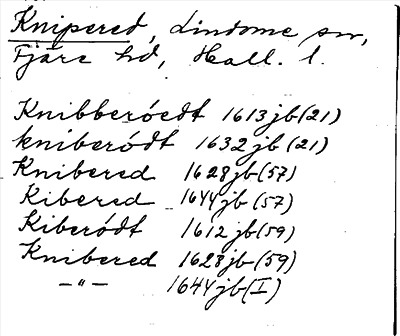 Knipered, Lindome sn,
Fjäre hd, Hall. l.
Knibberóedt 1613 jb (21)
kniberódt 1632 jb (21)
Knibered 1628 jb (57)
Kibered 1644 jb (57)
Kiberódt 1612 jb (59)
Knibered 1628 jb (59)
—"— 1644 jb (I)